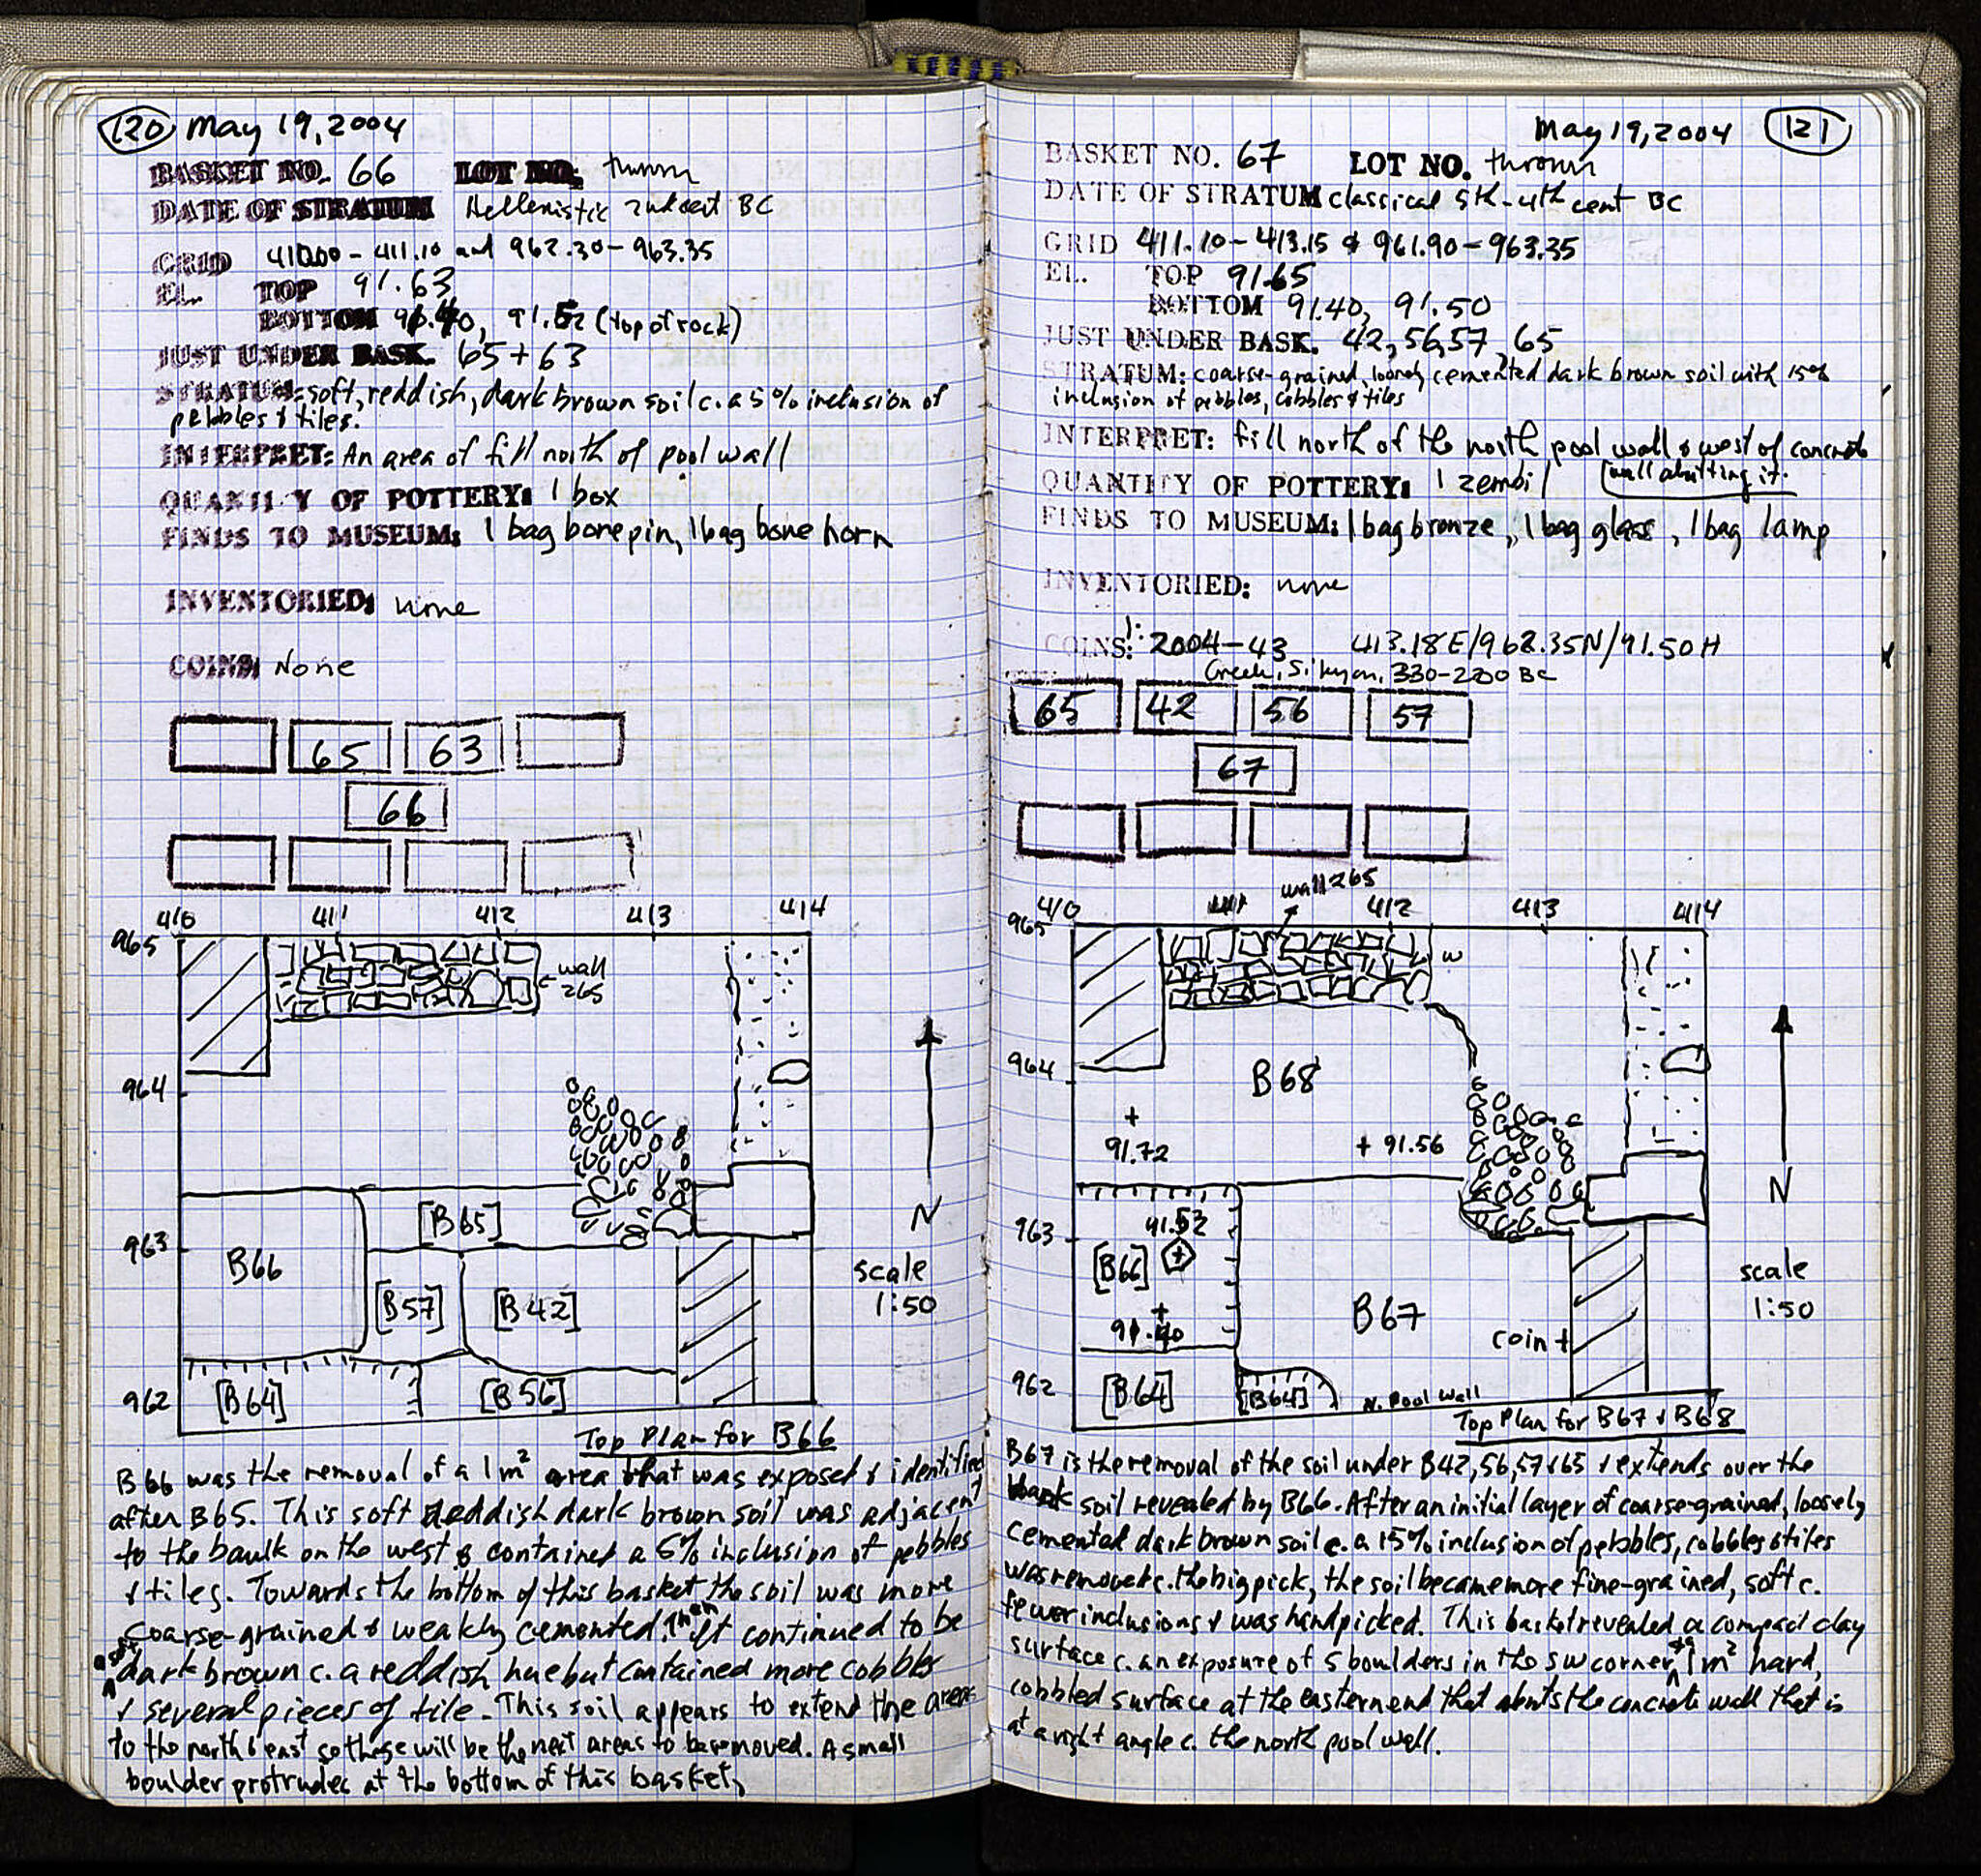 120 May 19, 2004
BASKET NO. 66 LOT NO. thrown
DATE OF STRATUM Hellenistic 2nd cent BC
GRID 410.00 - 411.10 and 962.30 - 963.35
EL. TOP 91.63
BOTTOM 91.40, 91.52 (top of rock)
JUST UNDER BASK. 65 + 63
STRATUM: soft, reddish, dark brown soil c. a 5% inclusion of
pebbles & tiles.
INTERPRET: An area of fill north of pool wall
QUANTITY OF POTTERY: 1 box
FINDS TO MUSEUM: 1 bag bone pin, 1 bag bone horn
INVENTORIED: none
COINS: None
65 63
66
410 411 412 413 414
965
wall
265
964
[B65]
963
B66
[B57] [B42]
N
scale
1:50
962
[B64] [B56]
Top Plan for B66
B66 was the removal of a 1m² area that was exposed & identified
after B65. This soft reddish dark brown soil was adjacent
to the baulk on the west & contained a 5% inclusion of pebbles
& tiles. Towards the bottom of this basket the soil was more
coarse-grained & weakly cemented. Then it continued to be
a soft dark brown c. a reddish hue but contained more cobbles
& several pieces of tile. This soil appears to extend the areas
to the north & east so these will be the next areas to be removed. A small
boulder protrudes at the bottom of this basket.
May 19, 2004 121
BASKET NO. 67 LOT NO. thrown
DATE OF STRATUM classical 5th-4th cent BC
GRID 411.10 - 413.15 & 961.90 - 963.35
EL. TOP 91.65
BOTTOM 91.40, 91.50
JUST UNDER BASK. 42, 56, 57, 65
STRATUM: coarse-grained, loosely cemented dark brown soil with 15%
inclusion of pebbles, cobbles & tiles
INTERPRET: fill north of the north pool wall & west of concrete
wall abutting it.
QUANTITY OF POTTERY: 1 zembil
FINDS TO MUSEUM: 1 bag bronze, 1 bag glass, 1 bag lamp
INVENTORIED: none
COINS: 1: 2004-43 413.18E/962.35N/91.50H
Greek, Sikyon, 330-200 BC
65 42 56 57
67
wall 265
410 411 412 413 414
965
w
964
B68
+
91.72
+ 91.56
963
91.52
[B66]
N
+
91.40
B67
scale
1:50
coin +
962
[B64] [B64] N. Pool Wall
Top Plan for B67 & B68
B67 is the removal of the soil under B42, 56, 57 & 65 & extends over the
soil revealed by B66. After an initial layer of coarse-grained, loosely
cemented dark brown soil c. a 15% inclusion of pebbles, cobbles & tiles
was removed c. the big pick, the soil became more fine-grained, soft c.
fewer inclusions & was handpicked. This basket revealed a compact clay
surface c. an exposure of 5 boulders in the sw corner & a 1m² hard,
cobbled surface at the eastern end that abuts the concrete wall that is
at a right angle c. the north pool wall.